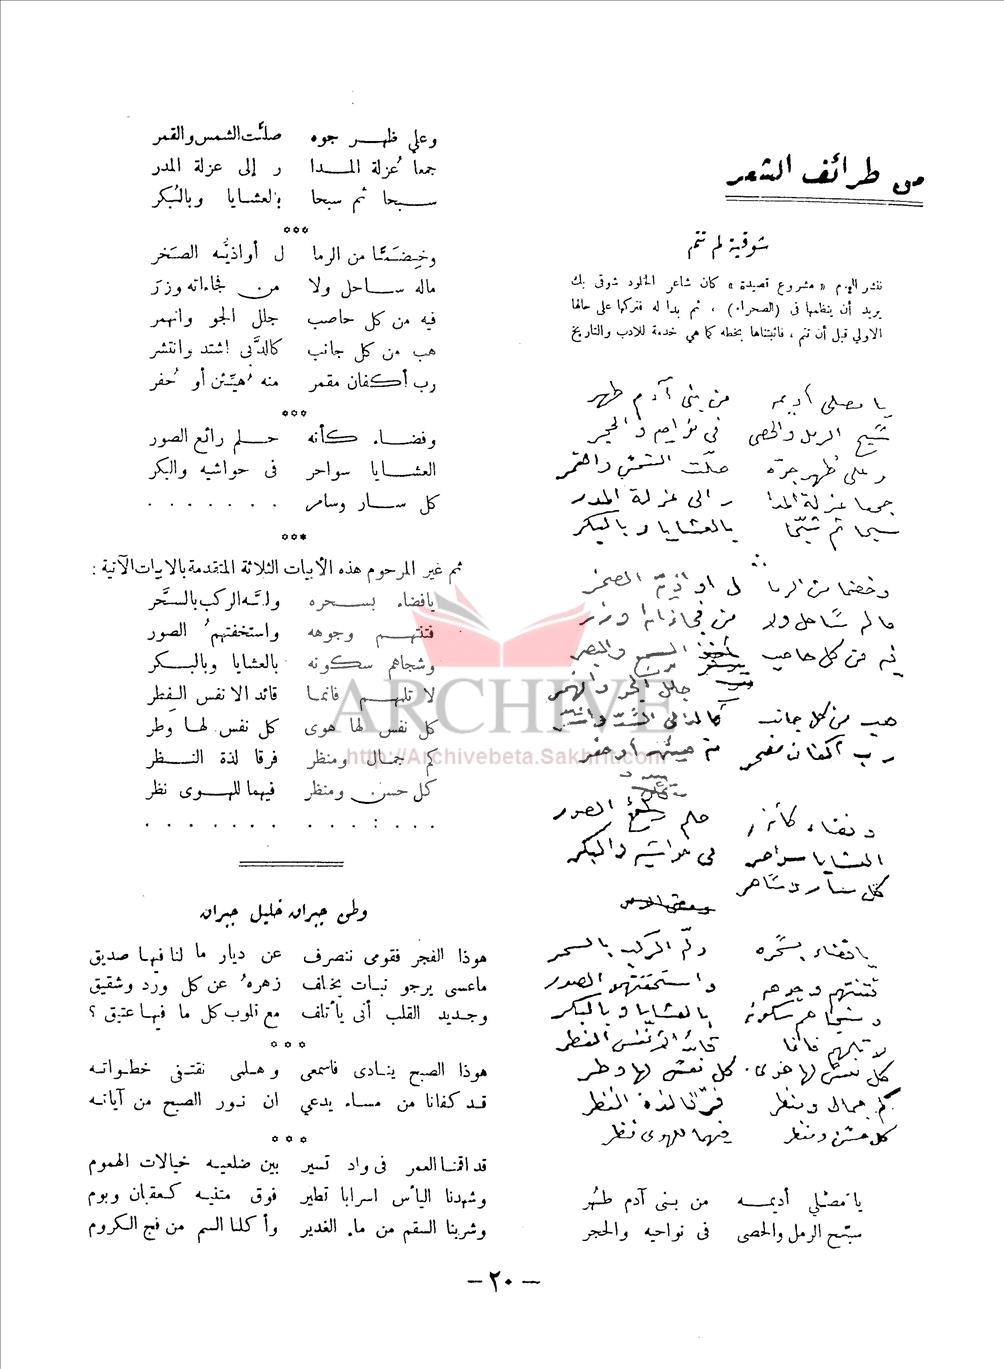 من طرائف الشعر
شوقية لم تتم
ننشر اليوم « مشروع قصيدة » كان شاعر الخلود شوقى بك
يريد أن ينظمها فى (الصحراء) ، ثم بدا له فتركها على حالها
الاولى قبل أن تتم ، فاثبتناها بخطه كما هى خدمة للادب والتاريخ
يا مصلى أديمه من بنى آدم طهر
سبّح الرمل والحصى فى نواحيه والحجر
وعلى ظهر جوّه صلّت الشمس والقمر
جمعا عزلة المدا ر الى عزلة المدر
سبحا ثم سبحا بالعشايا وبالبكر
وخضما من الرما ل اواذيّه الصخر
ماله ساحل ولا من فجاءاته وزر
فيه من كل حاصب السمع والبصر
جلل الجو وانهمر
هب من كل جانب كالدبى اشتد وانتشر
رب أكفان مقمر منه هيئن أو حفر
وفضاء كأنه حلم رائع الصور
العشايا سواحر فى حواشيه والبكر
كل سار وسامر
يافضاء بسحره ولّه الركب بالسحر
فتنتهم وجوهه واستخفتهم الصور
وشجاهم سكونه بالعشايا وبالبكر
لا تلهم فانما قائد الانفس الفطر
كل نفس لها هوى كل نفس لها وطر
كم جمال ومنظر فرقا لذة النظر
كل حسن ومنظر فيهما للهوى نظر
يا مصلى أديمه من بنى آدم طهر
سبّح الرمل والحصى فى نواحيه والحجر
وعلى ظهر جوه صلّت الشمس والقمر
جمعا عُزلة المدا ر إلى عزلة المدر
سبحا ثم سبحا بالعشايا وبالبُكر
***
وخِضمّا من الرما ل أواذيُّه الصَخر
ماله ساحل ولا من فجاءاته وزرَ
فيه من كل حاصب جلل الجو وانهمر
هب من كل جانب كالدَّبى اشتد وانتشر
رب أكفان مقمر منه هُيِّئن أو حُفر
***
وفضاء كأنه حلم رائع الصور
العشايا سواحر فى حواشيه والبكر
كل سار وسامر . . . . . . .
***
ثم غير المرحوم هذه الأبيات الثلاثة المتقدمة بالابيات الآتية :
يافضاء بسحره ولَّه الركب بالسَّحَر
فتنتهم وجوهه واستخفتهمُ الصور
وشجاهم سكونه بالعشايا وبالبكر
لا تلهم فانما قائد الانفس الفِطَر
كل نفس لها هوى كل نفس لها وطر
كم جمال ومنظر فرقا لذة النظر
كل حسن ومنظر فيهما للهوى نظر
. . . : . . . . . . . . .
وطن جبران خليل جبران
هوذا الفجر فقومى ننصرف عن ديار ما لنا فيها صديق
ماعسى يرجو نبات يختلف زهرهُ عن كل ورد وشقيق
وجديد القلب أنى يأتلف مع قلوب كل ما فيها عتيق ؟
* * *
هوذا الصبح ينادى فاسمعى وهلمى نقتفى خطواته
قد كفانا من مساء يدعي ان نور الصبح من آياته
* * *
قد اقمنا العمر فى واد تسير بين ضلعيه خيالات الهموم
وشهدنا اليأس اسرابا تطير فوق متنيه كعقبان وبوم
وشربنا السقم من ماء الغدير وأكلنا السم من فج الكروم
— ٢٠ —
ARCHIVE
http://Archivebeta.Sakhrit.com